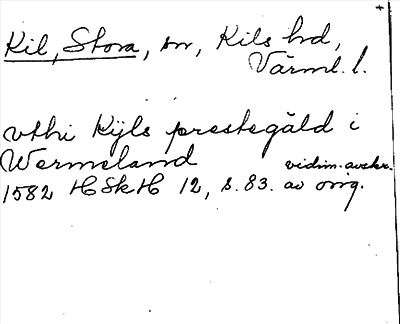 Kil, Stora, sn, Kils hd,
Värml. l.
vthi Kijls prestegäld i
Wermeland vidim. avskr.
1582 HSkH 12, s. 83. av orig.